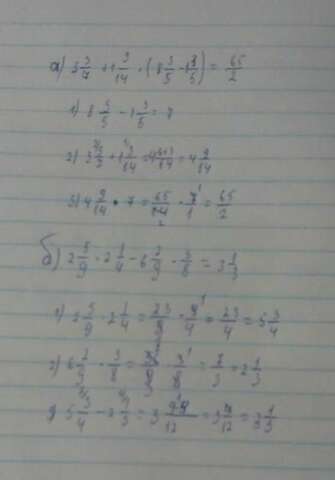 а) 3 3/7 + 1 3/14 · (8 3/5 - 1 3/5) = 65/2
1) 8 3/5 - 1 3/5 = 7
2) 3 3/7 + 1 3/14 = 4 6+3/14 = 4 9/14
3) 4 9/14 · 7 = 65/14 · 7/1 = 65/2
б) 2 5/9 · 2 1/4 - 6 2/9 · 3/8 = 3 1/3
1) 2 5/9 · 2 1/4 = 23/9 · 9/4 = 23/4 = 5 3/4
2) 6 2/9 · 3/8 = 56/9 · 3/8 = 7/3 = 2 1/3
3) 5 3/4 - 2 1/3 = 3